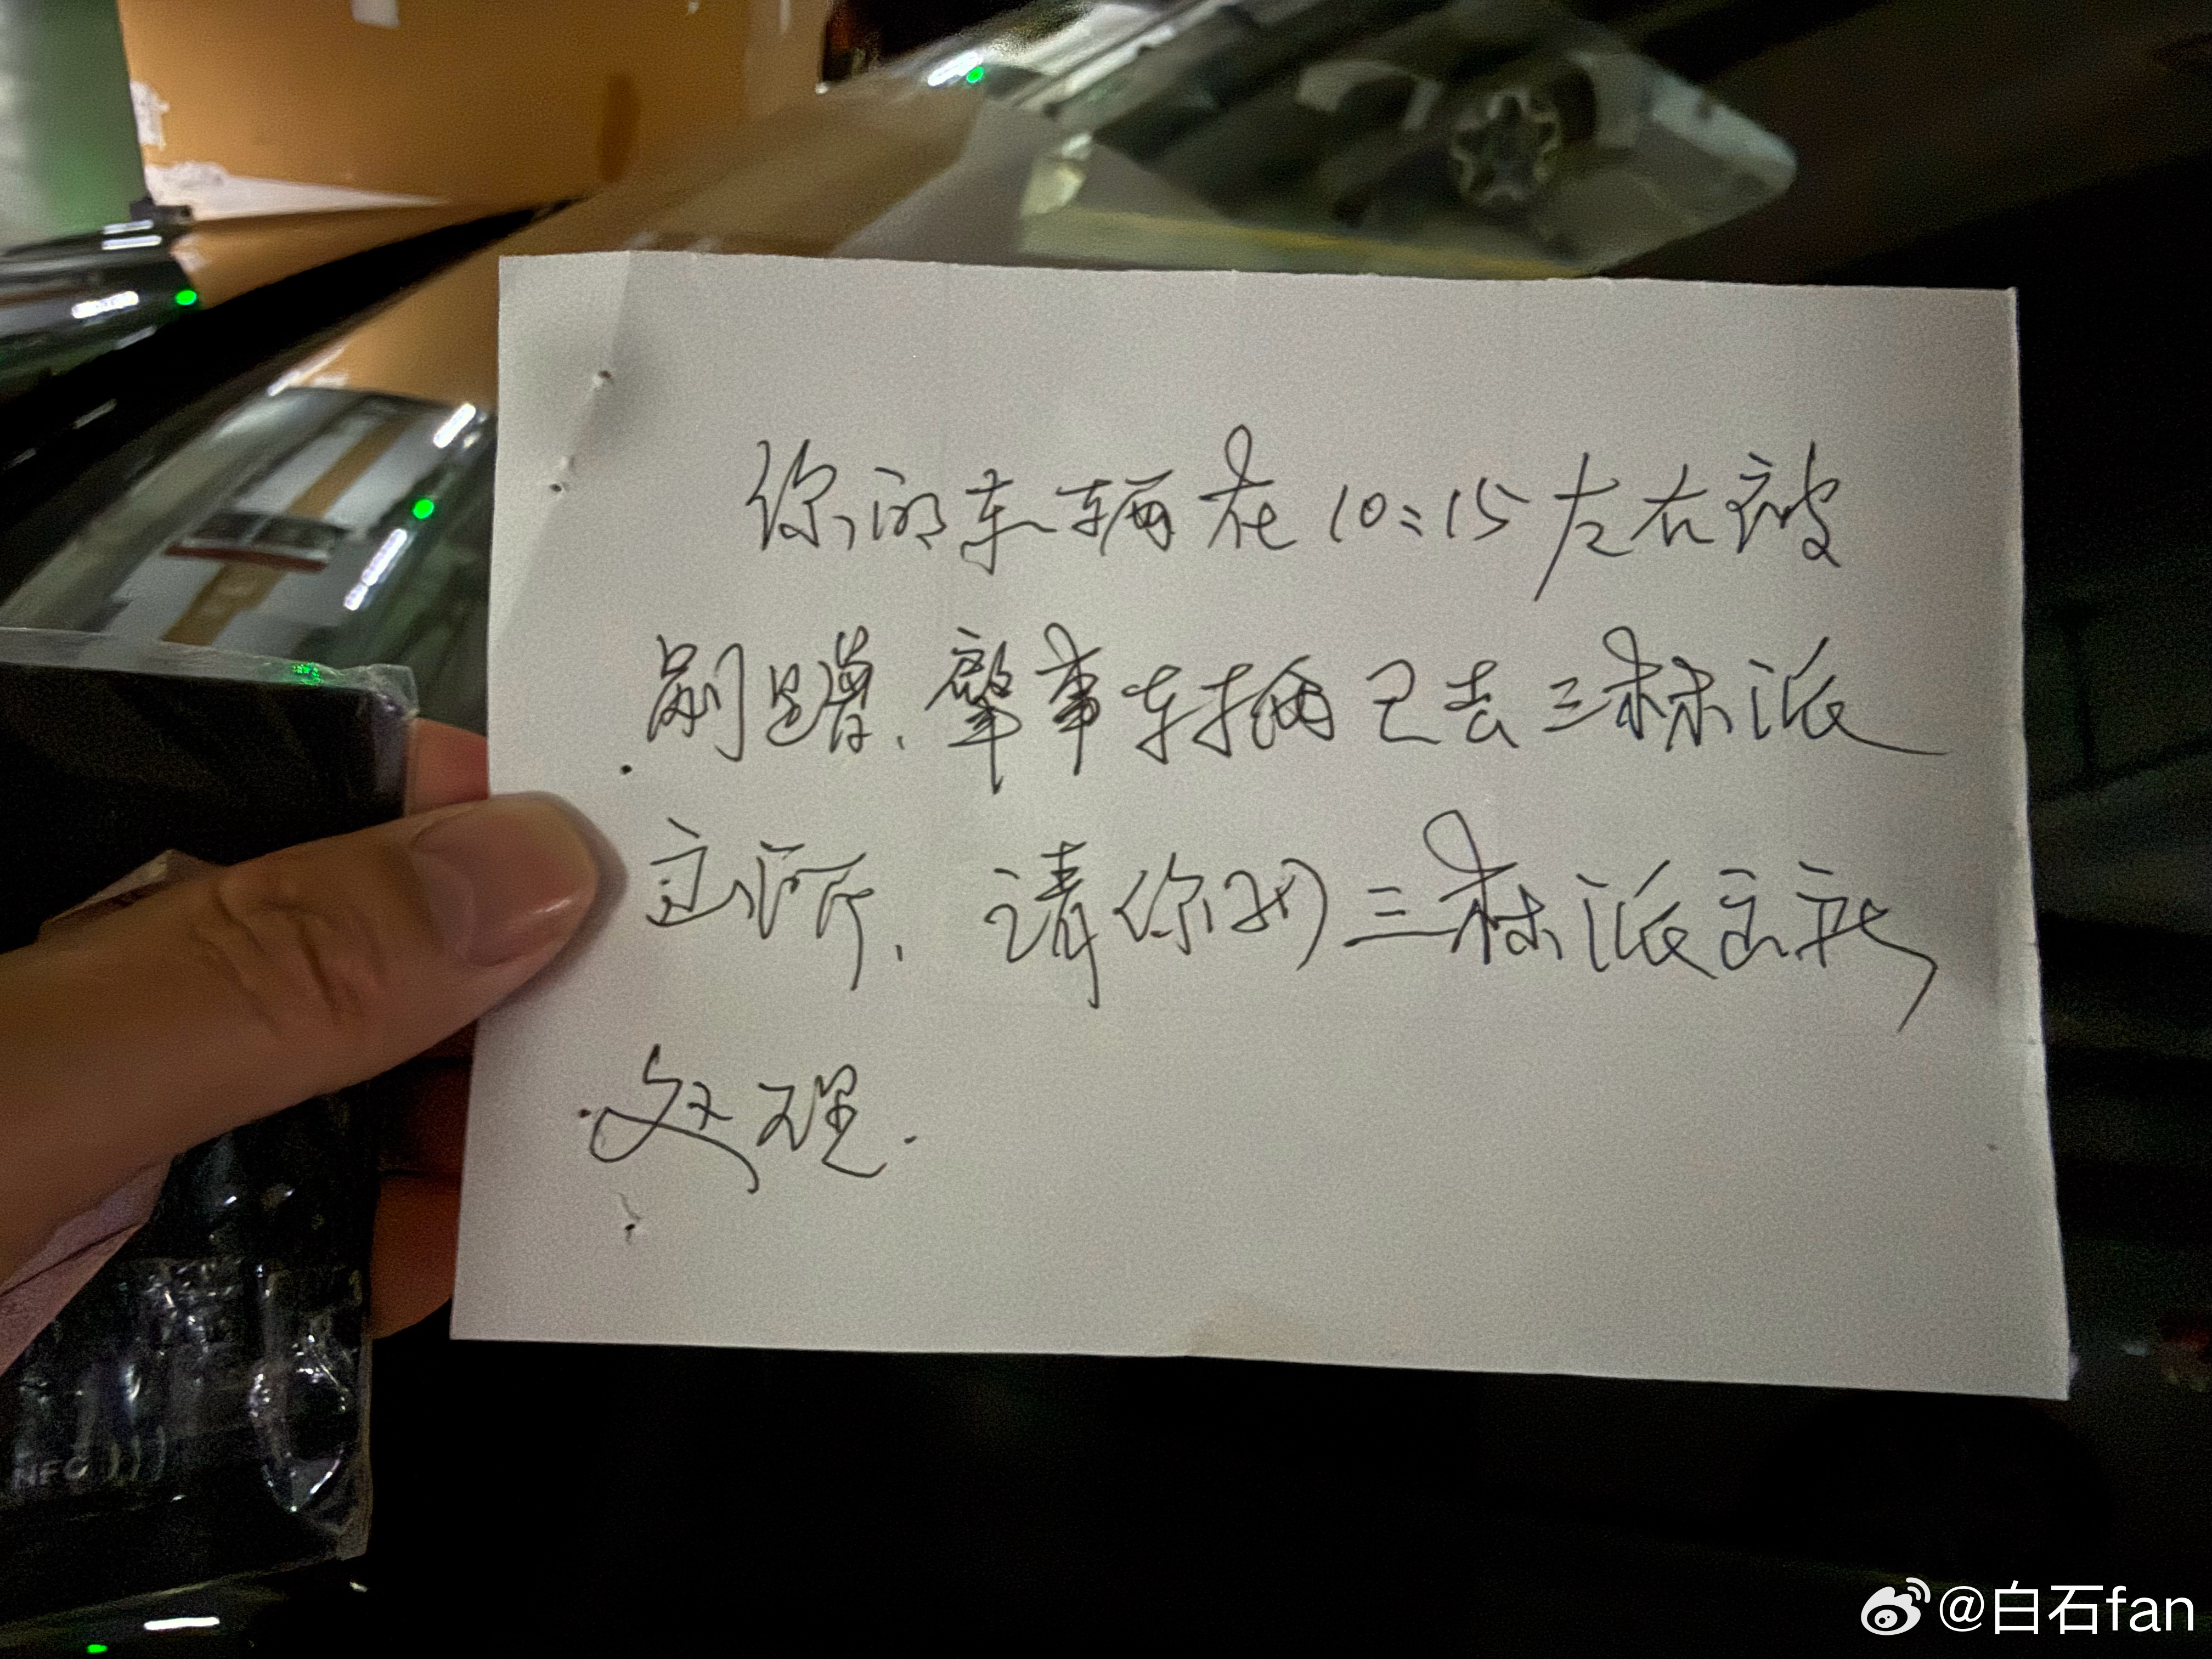 你的车辆在10:15左右被
剐蹭、肇事车辆已去三林派
出所、请你到三林派出所
处理.
NFC
@白石fan